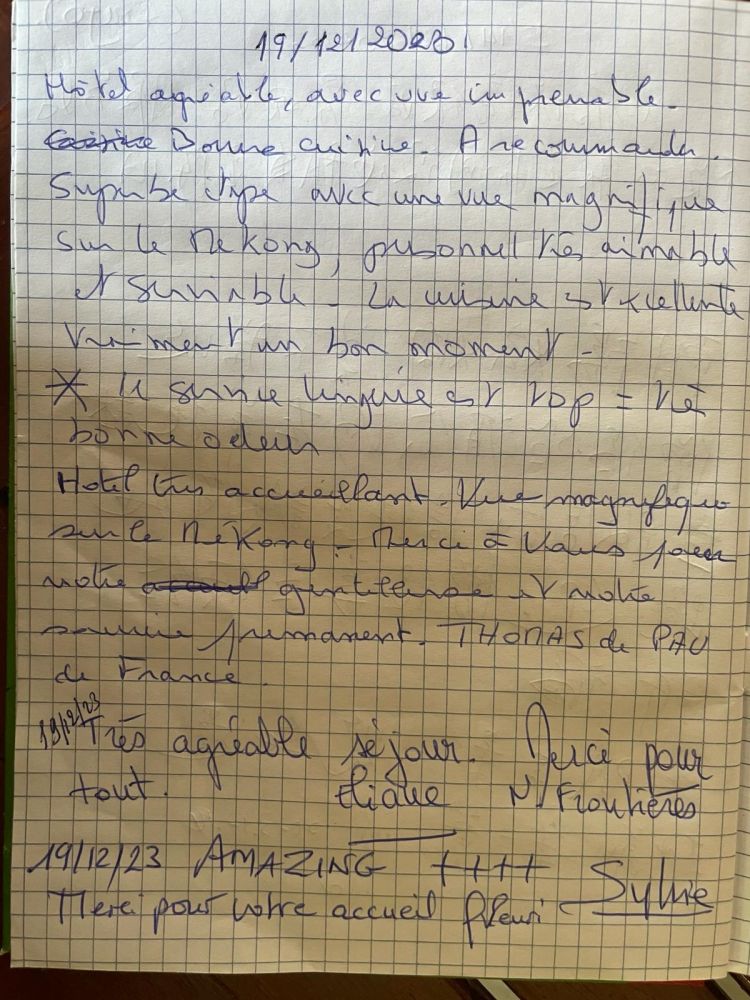 19/12/2023
Hôtel agréable, avec vue imprenable.
Bonne cuisine. A recommander.
Superbe étape avec une vue magnifique
sur le Mékong, personnel très aimable
et serviable - La cuisine est excellente
Vraiment un bon moment -
* le service lingerie est top = très
bonne odeur
Hotel très accueillant. Vue magnifique
sur le Mékong - Merci à Vous pour
votre gentillesse et votre
sourire permanent. THOMAS de PAU
de France.
19/12/23 Très agréable séjour. Merci pour
tout. N/ Frontières
19/12/23 AMAZING ++++ Sylvie
Merci pour votre accueil fleuri